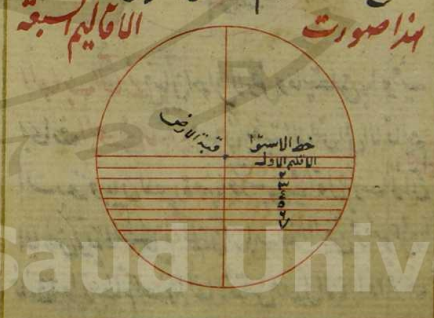 هذا صورت الاقاليم السبعة
قبة الارض
خط الاستوا
الاقليم الاول
٢
٣
٤
٥
٦
٧
Saud Univ